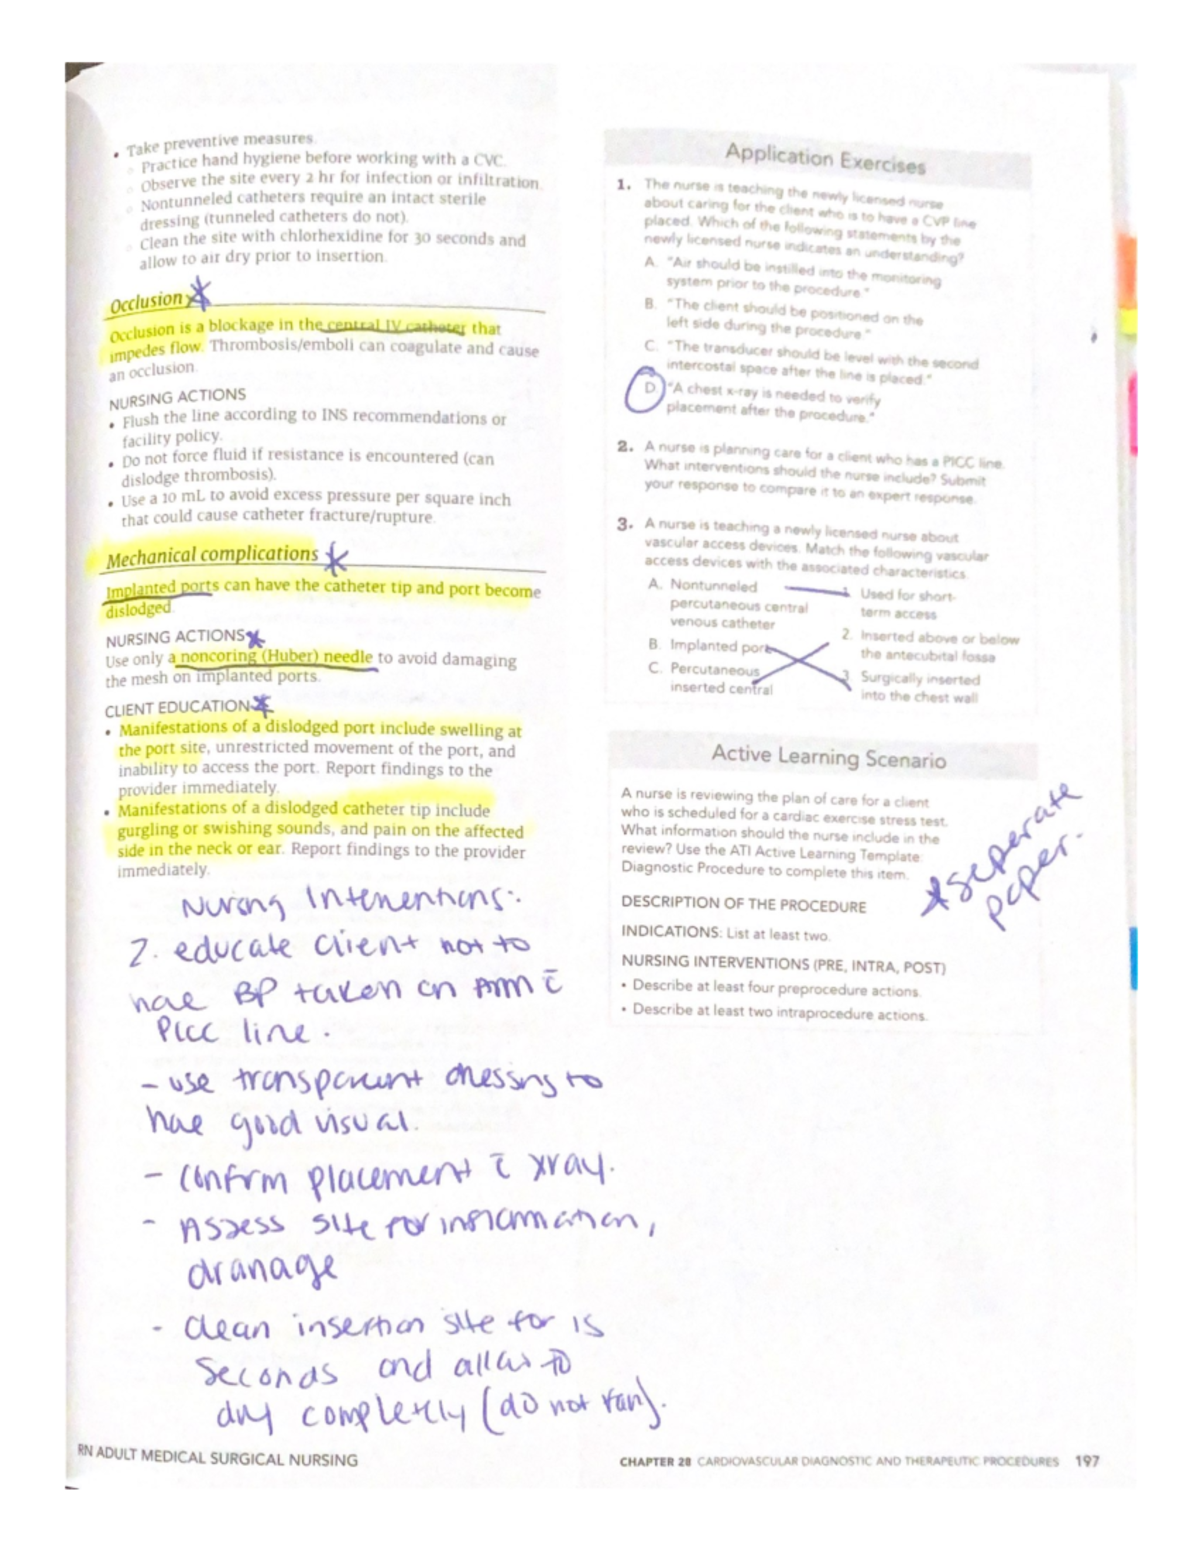 • Take preventive measures.
○ Practice hand hygiene before working with a CVC.
○ Observe the site every 2 hr for infection or infiltration.
○ Nontunneled catheters require an intact sterile
dressing (tunneled catheters do not).
○ Clean the site with chlorhexidine for 30 seconds and
allow to air dry prior to insertion.
Occlusion
Occlusion is a blockage in the central IV catheter that
impedes flow. Thrombosis/emboli can coagulate and cause
an occlusion.
NURSING ACTIONS
• Flush the line according to INS recommendations or
facility policy.
• Do not force fluid if resistance is encountered (can
dislodge thrombosis).
• Use a 10 mL to avoid excess pressure per square inch
that could cause catheter fracture/rupture.
Mechanical complications
Implanted ports can have the catheter tip and port become
dislodged.
NURSING ACTIONS
Use only a noncoring (Huber) needle to avoid damaging
the mesh on implanted ports.
CLIENT EDUCATION
• Manifestations of a dislodged port include swelling at
the port site, unrestricted movement of the port, and
inability to access the port. Report findings to the
provider immediately.
• Manifestations of a dislodged catheter tip include
gurgling or swishing sounds, and pain on the affected
side in the neck or ear. Report findings to the provider
immediately.
Nursing Interventions:
2. educate client not to
have BP taken on arm c̄
PICC line.
- use transparent dressing to
have good visual.
- Confirm placement c̄ xray.
- Assess site for inflammation,
dranage
- Clean insertion site for 15
seconds and allow to
dry completely (do not fan).
RN ADULT MEDICAL SURGICAL NURSING
Application Exercises
1. The nurse is teaching the newly licensed nurse
about caring for the client who is to have a CVP line
placed. Which of the following statements by the
newly licensed nurse indicates an understanding?
A. "Air should be instilled into the monitoring
system prior to the procedure."
B. "The client should be positioned on the
left side during the procedure."
C. "The transducer should be level with the second
intercostal space after the line is placed."
D. "A chest x-ray is needed to verify
placement after the procedure."
2. A nurse is planning care for a client who has a PICC line.
What interventions should the nurse include? Submit
your response to compare it to an expert response.
3. A nurse is teaching a newly licensed nurse about
vascular access devices. Match the following vascular
access devices with the associated characteristics.
A. Nontunneled
percutaneous central
venous catheter
B. Implanted port
C. Percutaneous
inserted central
1. Used for short-
term access
2. Inserted above or below
the antecubital fossa
3. Surgically inserted
into the chest wall
Active Learning Scenario
A nurse is reviewing the plan of care for a client
who is scheduled for a cardiac exercise stress test.
What information should the nurse include in the
review? Use the ATI Active Learning Template:
Diagnostic Procedure to complete this item.
DESCRIPTION OF THE PROCEDURE
INDICATIONS: List at least two.
NURSING INTERVENTIONS (PRE, INTRA, POST)
• Describe at least four preprocedure actions.
• Describe at least two intraprocedure actions.
*seperate
paper.
CHAPTER 28 CARDIOVASCULAR DIAGNOSTIC AND THERAPEUTIC PROCEDURES 197